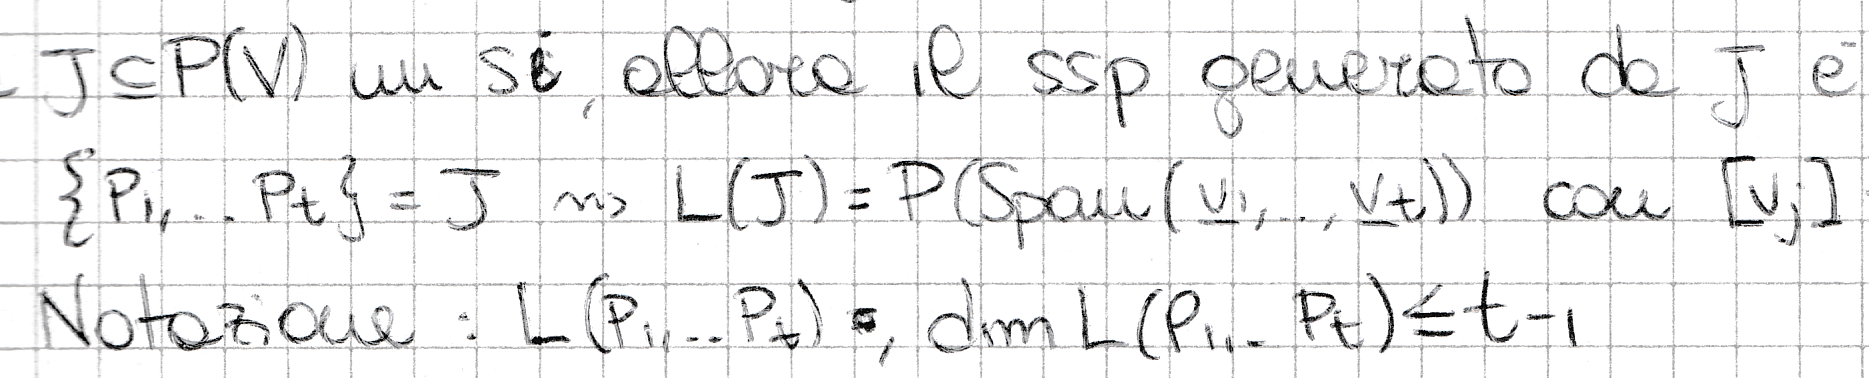 J ⊆ P(V) un si, allora il ssp generato da J è
{P₁,.. Pt} = J ⇝ L(J) = P(Span(v₁,..,vt)) con [vj]
Notazione : L(P₁,.. Pt) , dim L(P₁,.. Pt) ≤ t-1